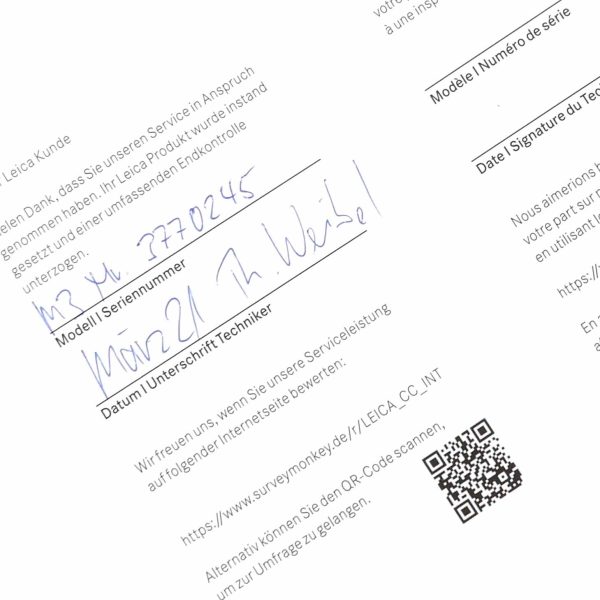 r Leica Kunde
elen Dank, dass Sie unseren Service in Anspruch
genommen haben. Ihr Leica Produkt wurde instand
gesetzt und einer umfassenden Endkontrolle
unterzogen.
M3 Nr. 3770245
Modell | Seriennummer
März 21 Th. Weibel
Datum | Unterschrift Techniker
Wir freuen uns, wenn Sie unsere Serviceleistung
auf folgender Internetseite bewerten:
https://www.surveymonkey.de/r/LEICA_CC_INT
Alternativ können Sie den QR-Code scannen,
um zur Umfrage zu gelangen.
votre
à une insp
Modèle | Numéro de série
Date | Signature du Tec
Nous aimerions b
votre part sur n
en utilisant l
https://
En a